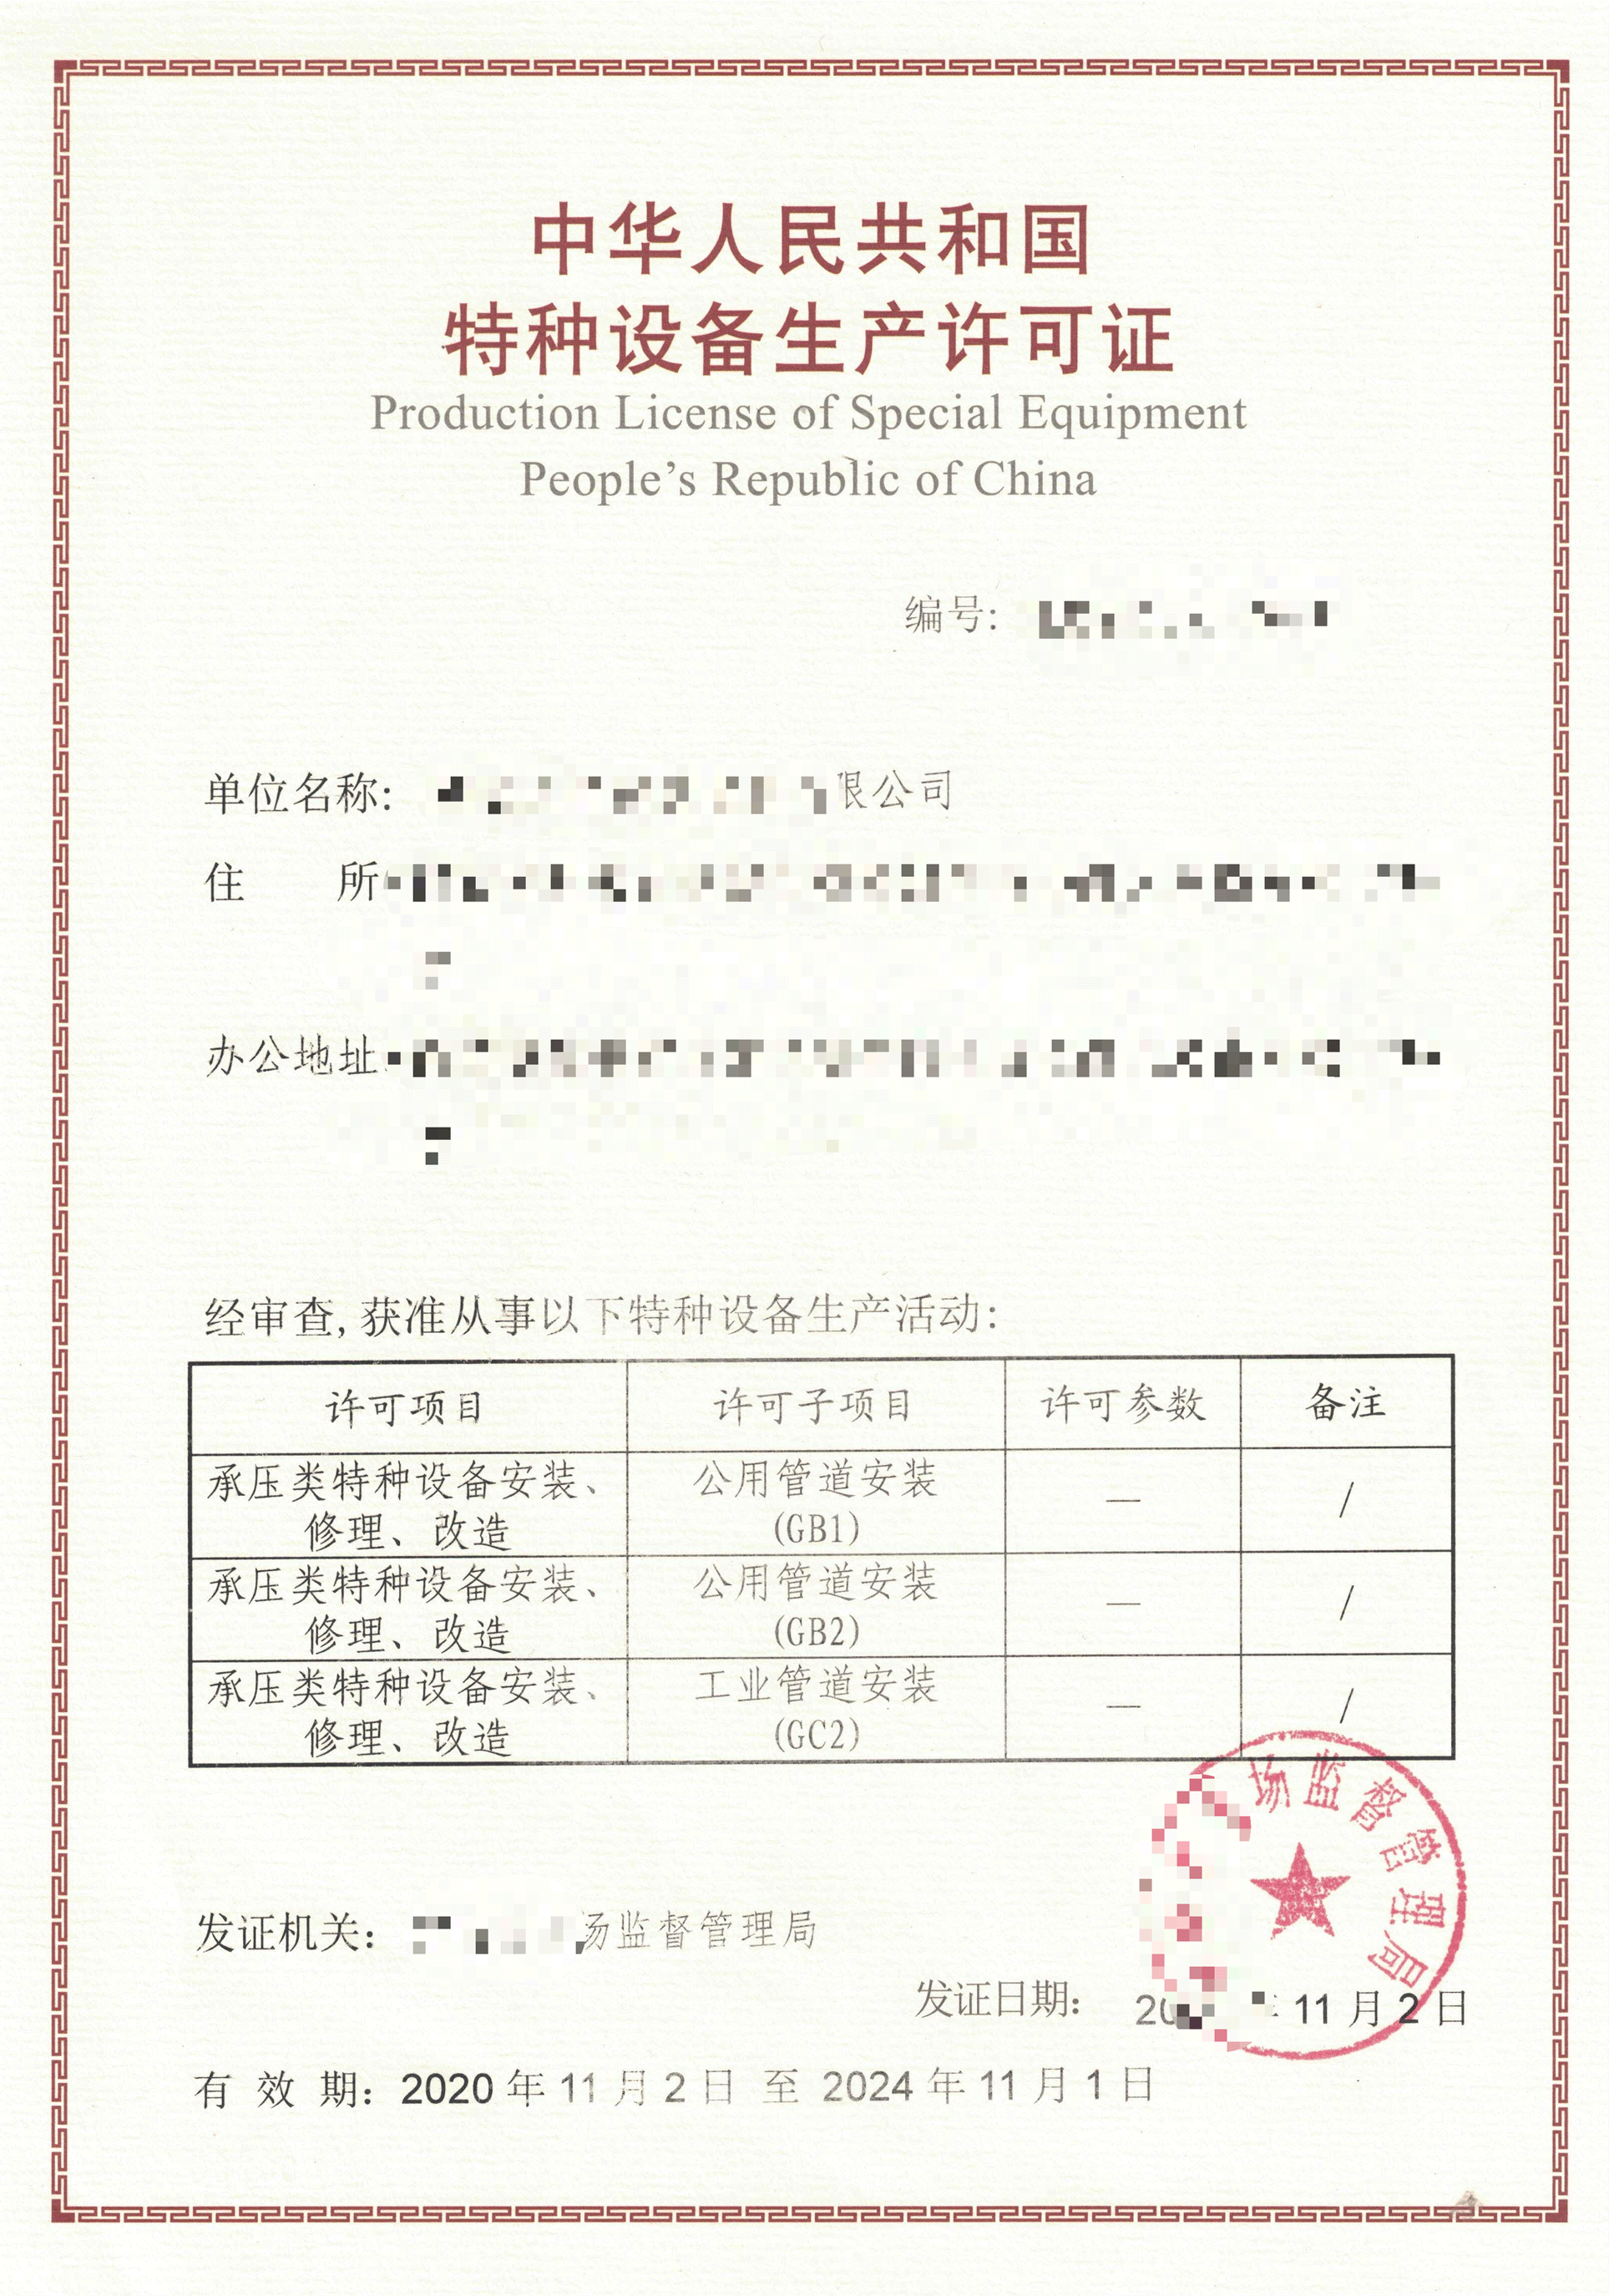 中华人民共和国
特种设备生产许可证
Production License of Special Equipment
People's Republic of China
编号:
单位名称: 限公司
住 所
办公地址
经审查,获准从事以下特种设备生产活动:
许可项目 许可子项目 许可参数 备注
承压类特种设备安装、修理、改造 公用管道安装(GB1) — /
承压类特种设备安装、修理、改造 公用管道安装(GB2) — /
承压类特种设备安装、修理、改造 工业管道安装(GC2) — /
场监督管理局
发证机关: 场监督管理局
发证日期: 11月2日
有效期: 2020年11月2日 至 2024年11月1日